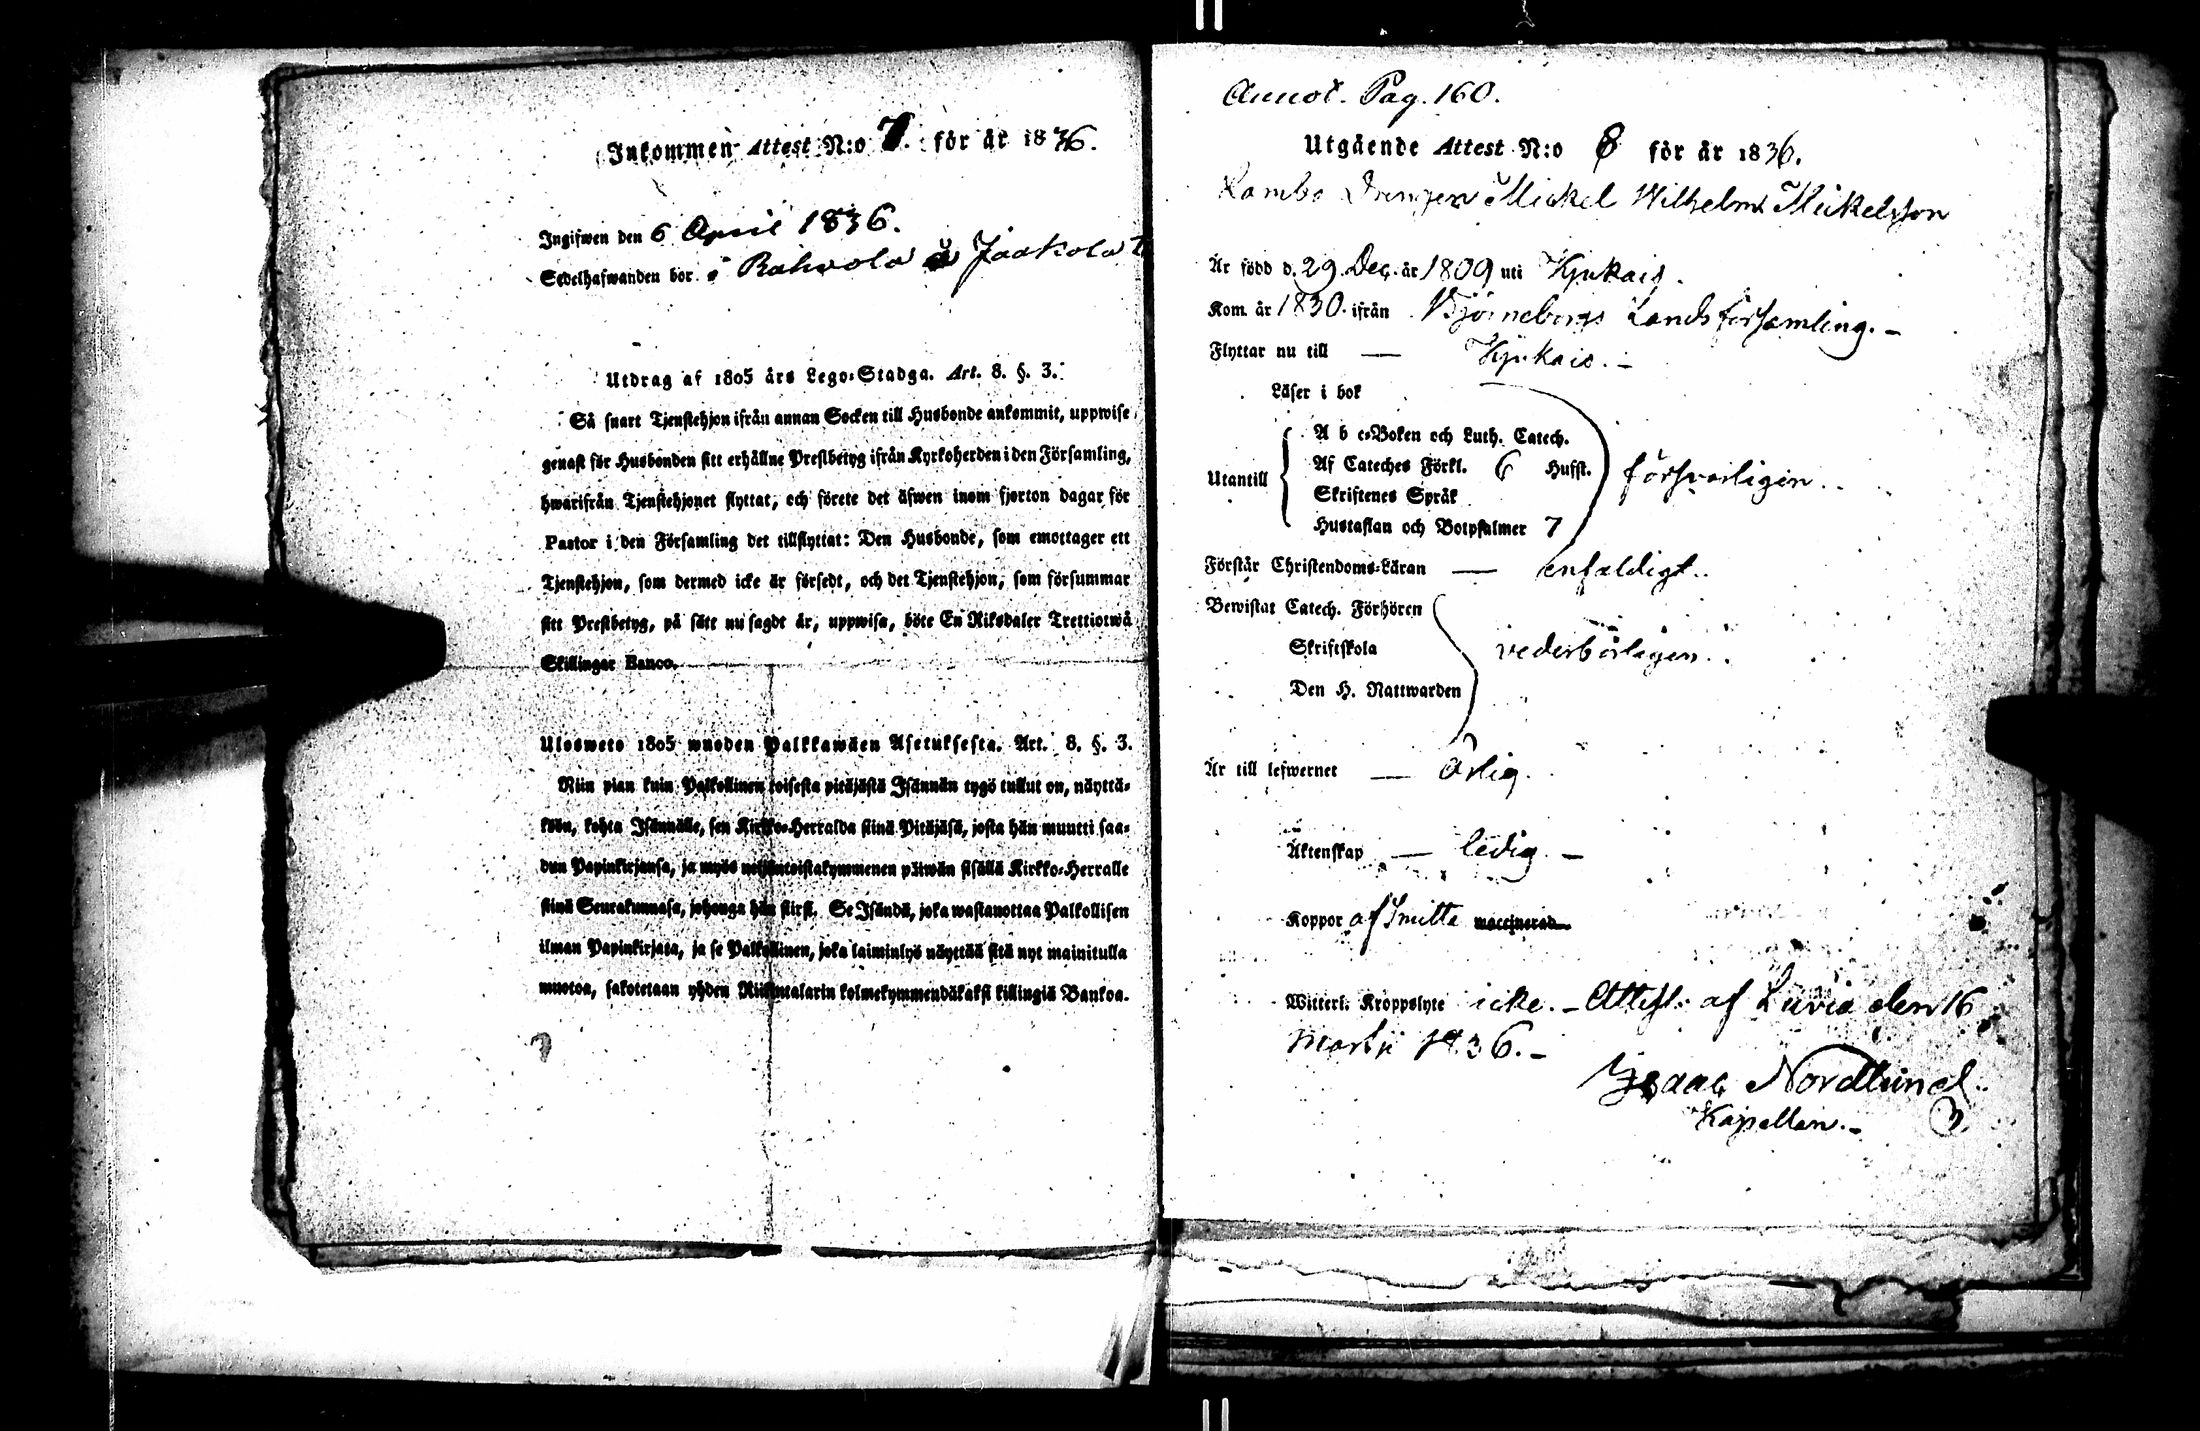 Inkommen Attest N:o 7. för år 1836.
Ingifwen den 6 April 1836.
Sedelhafwanden bor i Rahvola å Jaakola
Utdrag af 1805 års Lego-Stadga. Art. 8. §. 3.
Så snart Tjenstehjon ifrån annan Socken till Husbonde ankommit, uppwise
genast för Husbonden sitt erhållne Prestbetyg ifrån Kyrkoherden i den Församling,
hwarifrån Tjenstehjonet flyttat, och förete det äfwen inom fjorton dagar för
Pastor i den Församling det tillflyttat: Den Husbonde, som emottager ett
Tjenstehjon, som dermed icke är försedt, och det Tjenstehjon, som försummar
sitt Prestbetyg, på sätt nu sagdt är, uppwisa, böte En Riksdaler Trettiotwå
Skillingar Banco.
Ulosweto 1805 wuoden Palkkawäen Asetuksesta. Art. 8. §. 3.
Niin pian kuin Palkollinen toisesta pitäjästä Isännän tygö tullut on, näyttä-
köön, kohta Isännälle, sen Kirkko-Herralda siinä Pitäjäsä, josta hän muutti saa-
dun Papinkirjansa, ja myös neljäntoistakymmenen päiwän sisällä Kirkko-Herralle
siinä Seurakunnasa, johonga hän siirsi. Se Isändä, joka wastanottaa Palkollisen
ilman Papinkirjata, ja se Palkollinen, joka laiminlyö näyttää sitä nyt mainitulla
muotoa, sakotetaan yhden Riikintalarin kolmekymmendäkaksi killingiä Bankoa.
Annot. Pag. 160.
Utgående Attest N:o 8 för år 1836.
Drengen Mickel Wilhelm Mickelsson
Är född d. 29 Dec. år 1809 uti Kjukais.
Kom år 1830 ifrån Björneborgs Landsförsamling. -
Flyttar nu till — Kjukais. -
Läser i bok
A b c-Boken och Luth. Catech.
Utantill Af Cateches Förkl. 6 Hufst. försvarligen.
Skriftenes Språk
Hustaflan och Botpsalmer 7
Förstår Christendoms-Läran — enfaldigt.
Bewistat Catech. Förhören
Skriftskola vederbörligen.
Den H. Nattwarden
Är till lefwernet — Ärlig.
Äktenskap — ledig. -
Koppor af Smitta waccinerad
Witterl. Kroppslyte icke. - Attest. af Luvia den 16
Martii 1836. -
Isaac Nordlund.
Kapellan. -
3